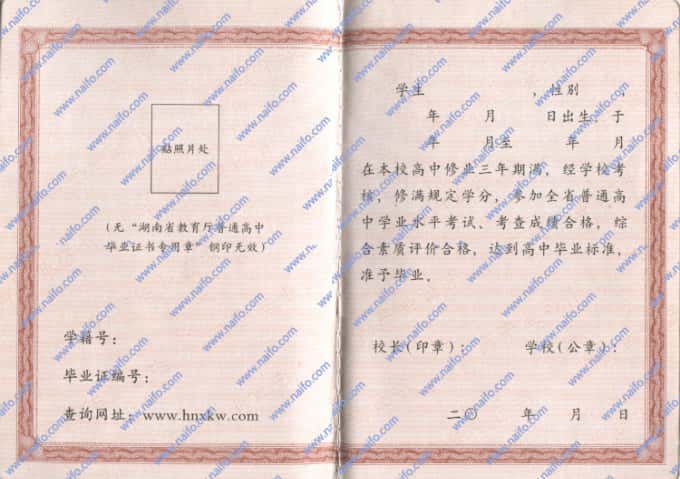 贴照片处
(无“湖南省教育厅普通高中
毕业证书专用章”钢印无效)
学籍号:
毕业证编号:
查询网址: www.hnxkw.com
学生 , 性别 ,
年 月 日出生, 于
年 月至 年 月
在本校高中修业三年期满, 经学校考
核, 修满规定学分, 参加全省普通高
中学业水平考试、考查成绩合格, 综
合素质评价合格, 达到高中毕业标准,
准予毕业。
校长(印章): 学校(公章):
二〇 年 月 日
www.naifo.com